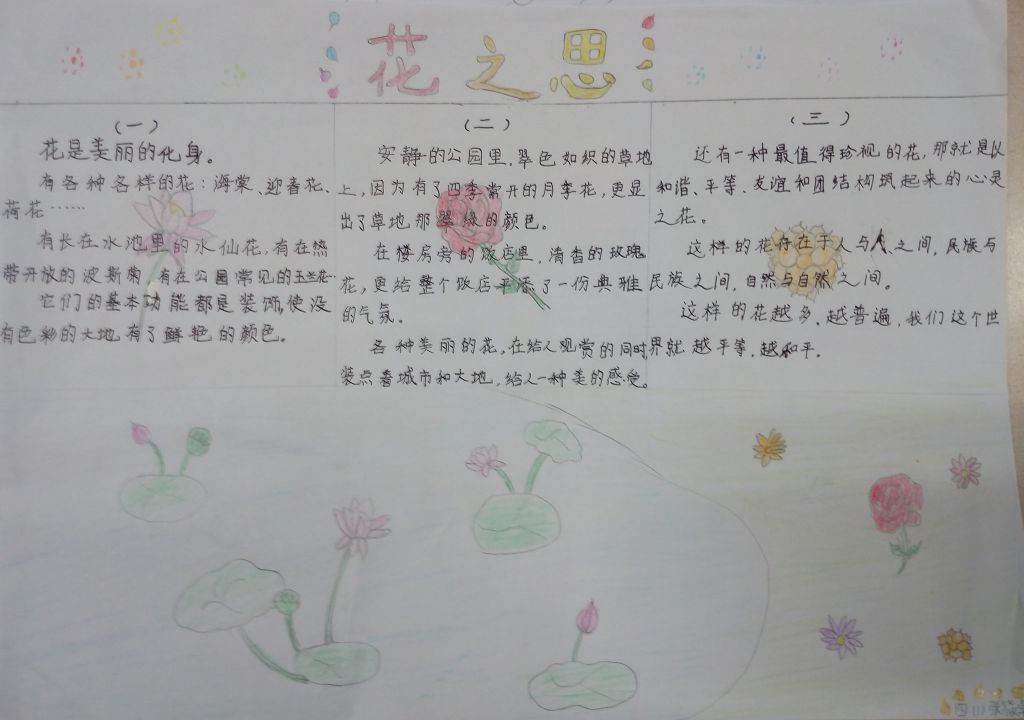 花之思
（一）
花是美丽的化身。
有各种各样的花：海棠、迎春花、
荷花……
有长在水池里的水仙花，有在热
带开放的波斯菊，有在公园常见的玉兰花
它们的基本功能都是装饰，使没
有色彩的大地有了鲜艳的颜色。
（二）
安静的公园里，翠色如织的草地
上，因为有了四季常开的月季花，更显
出了草地那翠绿的颜色。
在楼房旁的饭店里，清香的玫瑰
花，更给整个饭店平添了一份典雅
的气氛。
各种美丽的花，在给人观赏的同时，
装点着城市和大地，给人一种美的感受。
（三）
还有一种最值得珍视的花，那就是以
和谐、平等、友谊和团结构筑起来的心灵
之花。
这样的花存在于人与人之间，民族与
民族之间，自然与自然之间。
这样的花越多、越普遍，我们这个世
界就越平等，越和平。
四(1)